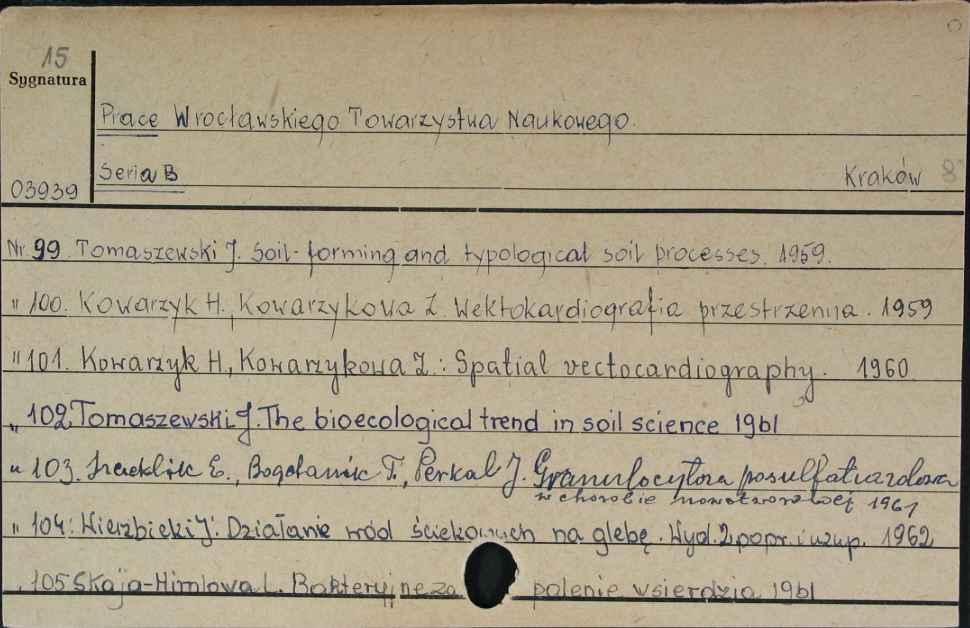 15
Sygnatura
Prace Wrocławskiego Towarzystwa Naukowego.
Seria B Kraków 8°
03939
Nr 99. Tomaszewski J. Soil-forming and typological soil processes. 1959.
" 100. Kowarzyk H., Kowarzykowa Z. Wektokardiografia przestrzenna. 1959
" 101. Kowarzyk H., Kowarzykowa Z.: Spatial vectocardiography. 1960
" 102. Tomaszewski J. The bioecological trend in soil science 1961
" 103. E., Bogdanik T., Perkal J. Granulocytoza posulfatiazolowa
w chorobie nowotworowej 1961
" 104. Wierzbicki J. Działanie wód ściekowych na glebę. Wyd. 2 popr. i uzup. 1962
105 Skaja-Himlowa L. Bakteryjne za palenie wsierdzia 1961